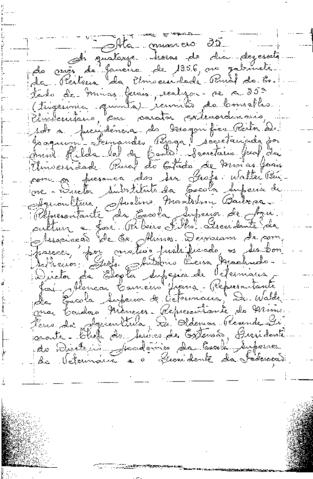 Ata número 35
Às quatorze horas do dia dezesseis
do mês de Janeiro de 1956, no gabinete
da Reitoria da Universidade Rural do Es-
tado de Minas Gerais, realizou-se a 35ª
(trigésima quinta) reunião do Conselho
Universitário, em caráter extraordinário,
sob a presidência do Magnífico Reitor Dr.
Joaquim Fernandes Braga, secretariada por
Secretário Geral da
Universidade Rural do Estado de Minas Gerais
com a presença dos srs. Profs. Walter
Diretor Substituto da Escola Superior de
Agricultura
Representante da Escola Superior de Agri-
cultura e José Ribeiro Filho, Presidente da
Associação de Ex-Alunos. Deixaram de com-
parecer por motivo justificado os senhores
Profs. Antônio Machado
Diretor da Escola Superior de Veterinária
Carneiro Viana - Representante
da Escola Superior de Veterinária, Dr. Walde-
mar Cardoso Menezes - Representante do Minis-
tério da Agricultura, Dr. Rezende
Chefe do Serviço de Extensão, Presidente
do Diretório Acadêmico da Escola Superior
de Veterinária e o Presidente da Federação